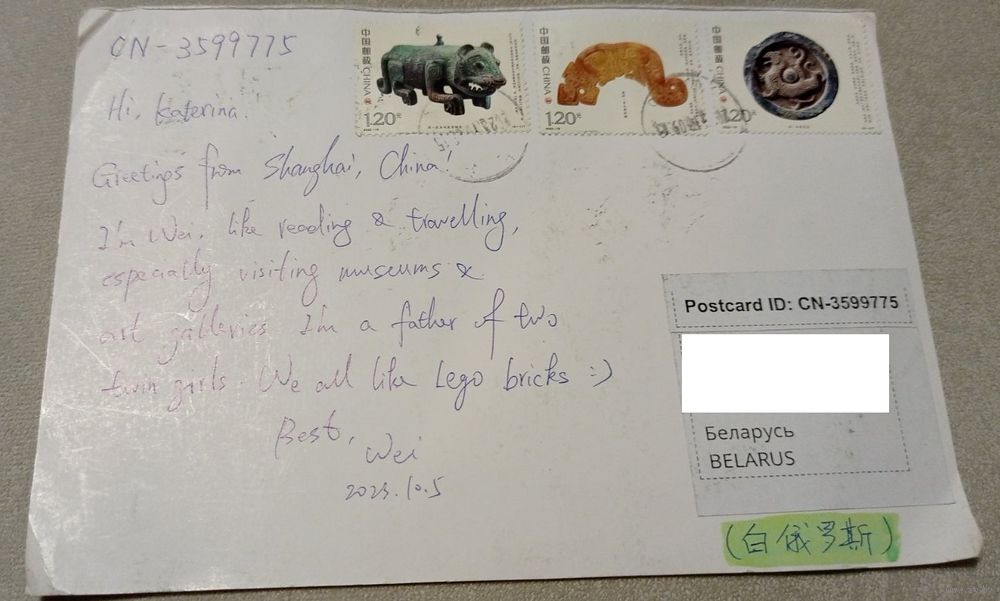 CN-3599775
中国邮政 CHINA
1.20元
中国邮政 CHINA
1.20元
中国邮政 CHINA
1.20元
Hi, Katerina.
Greetings from Shanghai, China!
I'm Wei, like reading & travelling,
especially visiting museums &
art galleries. I'm a father of two
twin girls. We all like Lego bricks :)
Best,
Wei
2023.10.5
Postcard ID: CN-3599775
Беларусь
BELARUS
(白俄罗斯)